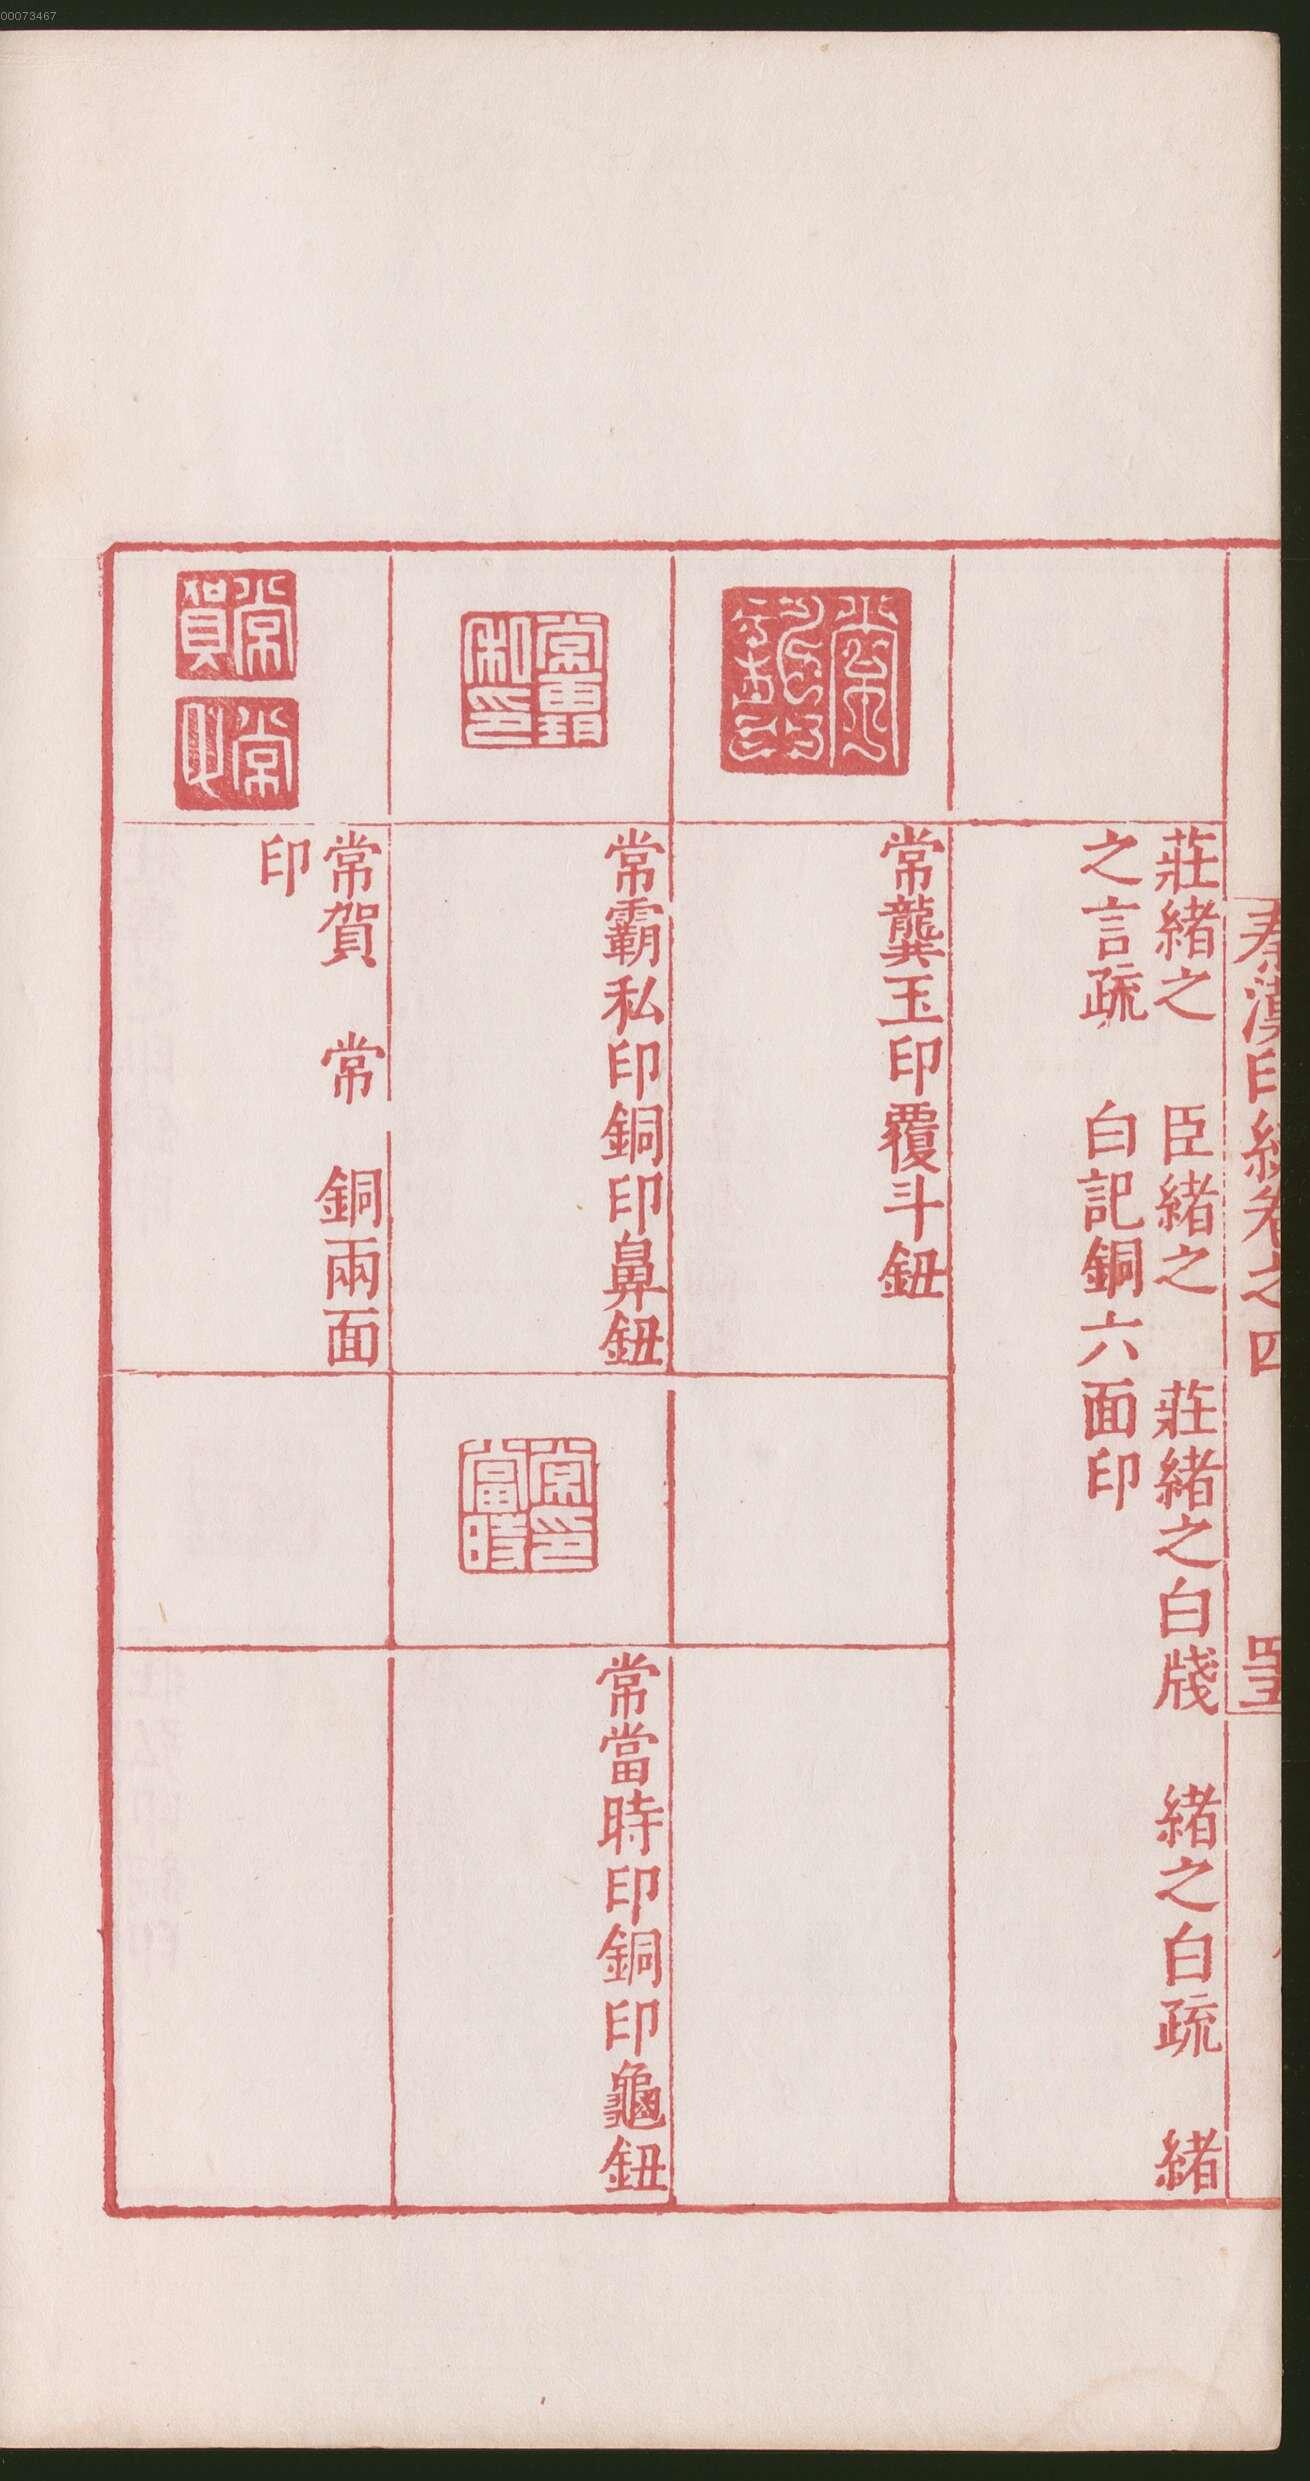 00073467
秦漢印統卷之四
莊緒之　臣緒之　莊緒之白牋　緒之白疏　緒
之言疏　白記銅六面印
常龔玉印覆斗鈕
常霸私印銅印鼻鈕
常霸私印
常當時印銅印龜鈕
常當時印
常賀　常　銅兩面
印
常賀